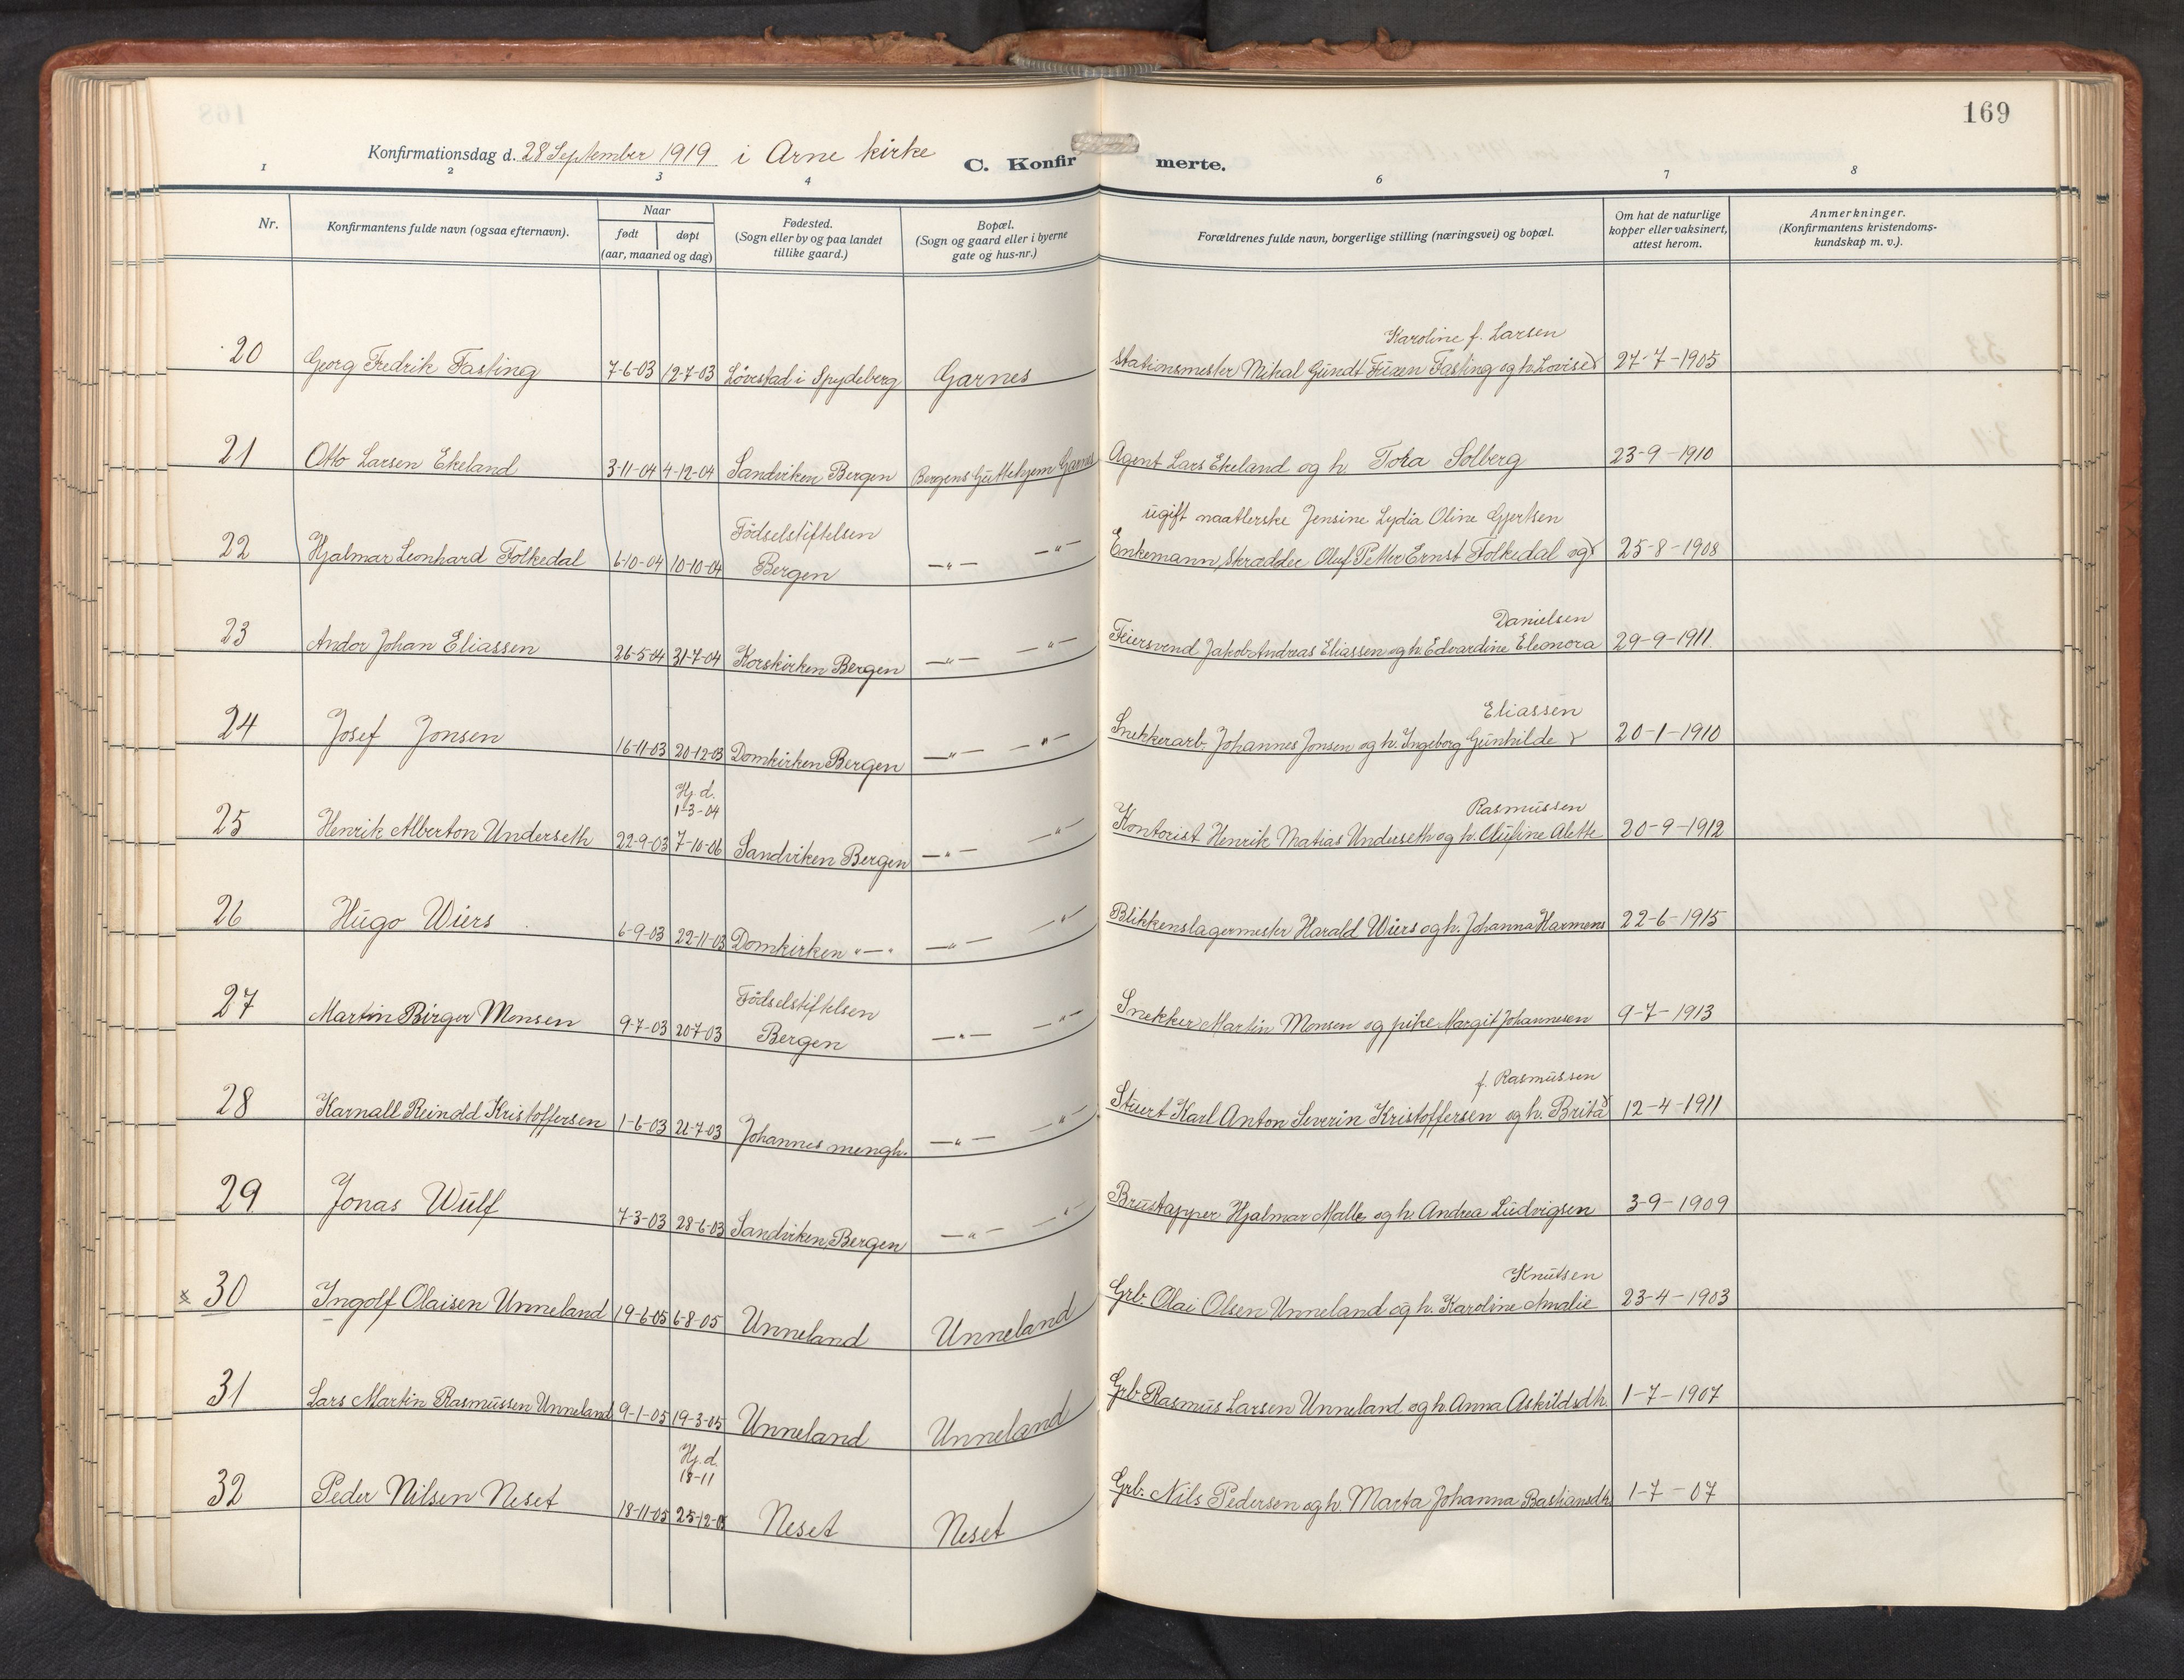 169
Konfirmationsdag d. 28 September 1919 i Arne kirke C. Konfirmerte.
1 2 3 4 6 7 8
Nr.
Konfirmantens fulde navn (ogsaa efternavn).
Naar
født døpt
(aar, maaned og dag)
Fødested.
(Sogn eller by og paa landet
tillike gaard.)
Bopæl.
(Sogn og gaard eller i byerne
gate og hus-nr.)
Forældrenes fulde navn, borgerlige stilling (næringsvei) og bopæl.
Om hat de naturlige
kopper eller vaksinert,
attest herom.
Anmerkninger.
(Konfirmantens kristendoms-
kundskap m. v.).
Karoline f. Larsen
20 Georg Fredrik Fasting 7-6-03 12-7-03 Løvestad i Spydeberg Garnes Stationsmester Mikal Gundt Füxen Fasting og h. Lovise 27-7-1905
21 Otto Larsen Ekeland 3-11-04 4-12-04 Sandviken Bergen Bergens Guttehjem Garnes Agent Lars Ekeland og h. Tora Solberg 23-9-1910
Födselstiftelsen ugift naatlerske Jensine Lydia Oline Gjertsen
22 Hjalmar Leonhard Folkedal 6-10-04 10-10-04 Bergen —"— —"— Enkemann, Skrædder Oluf Petter Ernst Folkedal og 25-8-1908
Danielsen
23 Andor Johan Eliassen 26-5-04 31-7-04 Korskirken Bergen —"— —"— Feiersvend Jakob Andreas Eliassen og h. Edvardine Eleonora 29-9-1911.
Eliassen
24 Josef Jonsen 16-11-03 20-12-03 Domkirken Bergen —"— —"— Snekkerarb. Johannes Jonsen og h. Ingeborg Gunhilde 20-1-1910
Hj. d.
1-3-04 Rasmussen
25 Henrik Alberton Underseth 22-9-03 7-10-06 Sandviken Bergen —"— —"— Kontorist Henrik Matias Underseth og h. Olufine Alette 20-9-1912
26 Hugo Wiers 6-9-03 22-11-03 Domkirken "—" —"— —"— Blikkenslagermester Harald Wiers og h. Johanna Harmens 22-6-1915
Födselstiftelsen
27 Martin Birger Monsen 9-7-03 20-7-03 Bergen —"— —"— Snekker Martin Monsen og pike Margit Johannesen 9-7-1913
f. Rasmussen
28 Karnall Reinold Kristoffersen 1-6-03 21-7-03 Johannes mengh. —"— —"— Stuert Karl Anton Severin Kristoffersen og h. Brita 12-4-1911
29 Jonas Wulf 7-3-03 28-6-03 Sandviken, Bergen —"— —"— Brustapper Hjalmar Malle og h. Andrea Ludvigsen 3-9-1909
Knutsen
x 30 Ingolf Olaisen Unneland 19-6-05 6-8-05 Unneland Unneland Grb. Olai Olsen Unneland og h. Karoline Amalie 23-4-1903
31 Lars Martin Rasmussen Unneland 9-1-05 19-3-05 Unneland Unneland Grb. Rasmus Larsen Unneland og h. Anna Askildsdh. 1-7-1907
Hj. d.
18-11
32 Peder Nilsen Neset 18-11-05 25-12-05 Neset Neset Grb. Nils Pedersen og h. Marta Johanna Bastiansdh. 1-7-07